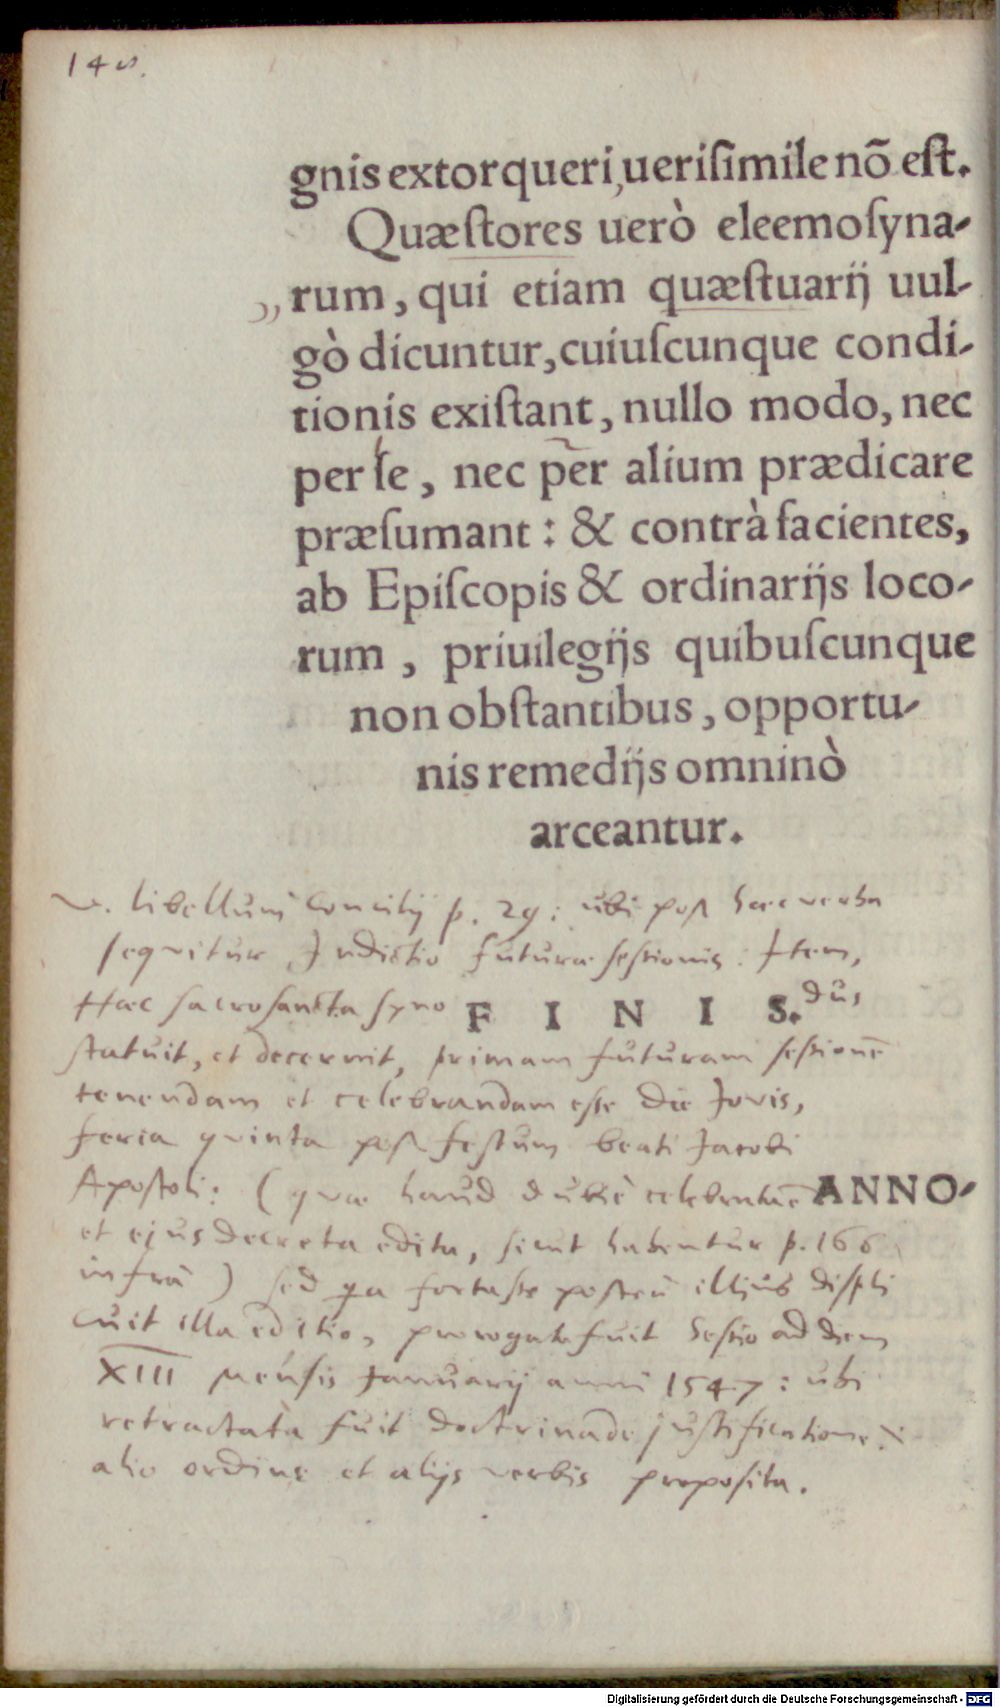 148.
gnis extorqueri, uerisimile nõ est.
Quæstores uerò eleemosyna-
„ rum, qui etiam quæstuarij uul-
gò dicuntur, cuiuscunque condi-
tionis existant, nullo modo, nec
per se, nec per alium prædicare
præsumant: & contrà facientes,
ab Episcopis & ordinarijs loco-
rum, priuilegijs quibuscunque
non obstantibus, opportu-
nis remedijs omninò
arceantur.
v. libellum Concilij p. 29: ubi post haec verba
sequitur Indictio futurae sessionis. Item,
Haec sacrosancta syno dus
F I N I S.
statuit, et decernit, primam futuram sessionē
tenendam et celebrandam esse die Jovis,
feria quinta post festum beati Jacobi
Apostoli: (quae haud dubiè
ANNO-
et ejus decreta edita, sicut habentur p. 166
infrà) sed fortasse illius displi
cuit illa editio, prorogata fuit Sessio ad diem
XIII mensis Januarij anni 1547: ubi
retractata fuit doctrina de justificatione,
alio ordine et alijs verbis proposita.
Digitalisierung gefördert durch die Deutsche Forschungsgemeinschaft - DFG